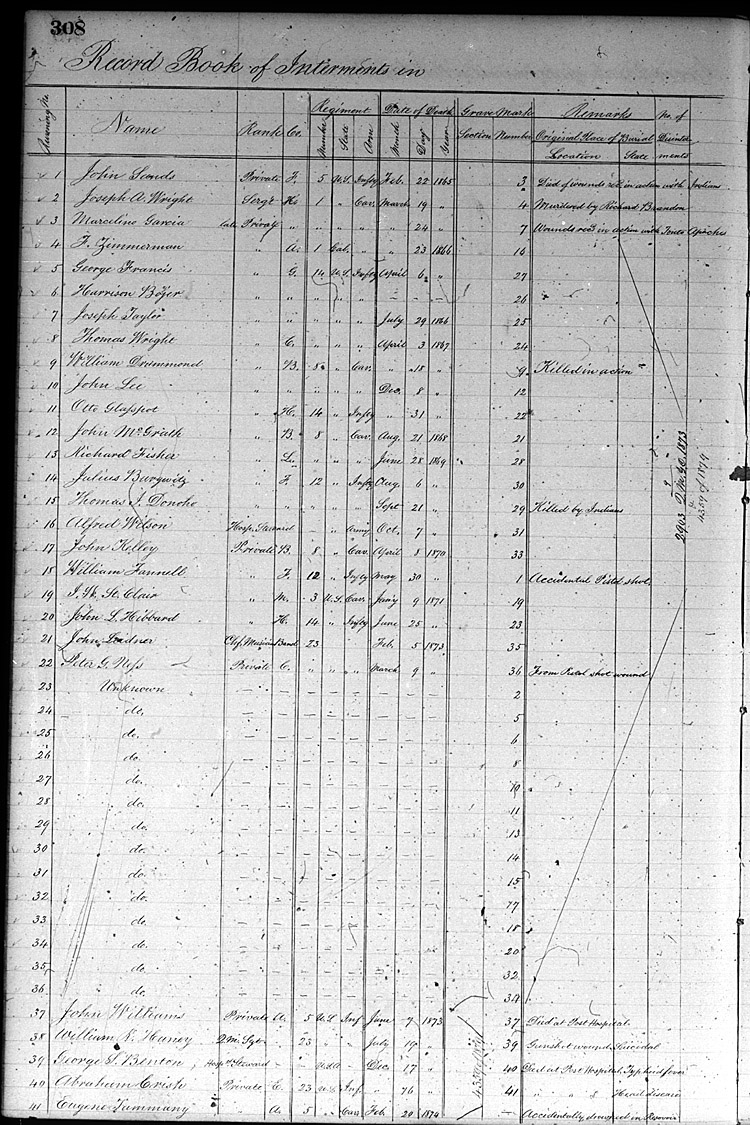 308
Record Book of Interments in
Running No. Name Rank Co. Regiment Date of Death Grave Mark Remarks No. of
Number State Arm Month Day Year Section Number Original Place of Burial Disinter
Location State ments
1 John Sonds Private F. 5 U.S. Infty Feb. 22 1865 3 Died of wounds recd in action with Indians
2 Joseph A. Wright Serg't 1 " Cav. March 19 " 4 Murdered by Richard Brandon
3 Marcelino Garcia late Private " " " " " 24 " 7 Wounds recd in action with Tonto Apaches
4 F. Zimmerman " A. 1 Cal. " " 23 1866 16
5 George Francis " G. 14 U.S. Infty April 6 " 27
6 Harrison Boyer " " " " " — — — 26
7 Joseph Taylor " " " " " July 29 1866 25
8 Thomas Wright " C. " " " April 3 1867 24
9 William Drummond " B. 8 " Cav. " 18 " 9 Killed in action
10 John Lee " " " " " Dec. 8 " 12
11 Otto Glasspot " H. 14 " Infty " 31 " 22
12 John McGrath " B. 8 " Cav. Aug. 21 1868 21
13 Richard Fisher " L. " " " June 28 1869 28
14 Julius Burgwitz " F. 12 " Infty Aug 6 " 30
15 Thomas J. Donohe " " " " " Sept 21 " 29 Killed by Indians
16 Alfred Wilson Hosp. Steward — " Army Oct. 7 " 31
17 John Kelley Private B. 8 " Cav. April 8 1870 33
18 William Fannell " F. 12 " Infty May 30 " 1 Accidental Pistol shot
19 St. Clair " M. 3 U.S. Cav. Jan'y 9 1871 19
20 John L. Hibbard " H. 14 " Infty June 25 " 23
21 John Lidner Chf. Musician Band 23 Feb. 5 1873 35
22 Peter G. Ness Private C. " " " March 9 " 36 From Pistol shot wound
23 Unknown — — — — — — — — 2
24 do. — — — — — — — — 5
25 do. — — — — — — — — 6
26 do. — — — — — — — — 8
27 do. — — — — — — — — 10
28 do. — — — — — — — — 11
29 do. — — — — — — — — 13
30 do. — — — — — — — — 14
31 do. — — — — — — — — 15
32 do. — — — — — — — — 17
33 do. — — — — — — — — 18
34 do. — — — — — — — — 20
35 do. — — — — — — — — 32
36 do. — — — — — — — — 34
37 John Williams Private A. 5 U.S. Inf June 7 1873 37 Died at Post Hospital.
38 William R. Haney Q.M. Sgt. 23 " " July 19 " 39 Gunshot wound, Suicidal
39 George S. Benton, Hosp'l Steward - - Dec. 17 " 40 Died at Post Hospital, Typhoid fever
40 Abraham Crist Private E. 23 U.S. Inf. " " 41 " " " Heart disease
41 Eugene Tammany " A. 5 " Cav. Feb. 20 1874 — Accidentally drowned in Reservoir
1873
4351 of 1874